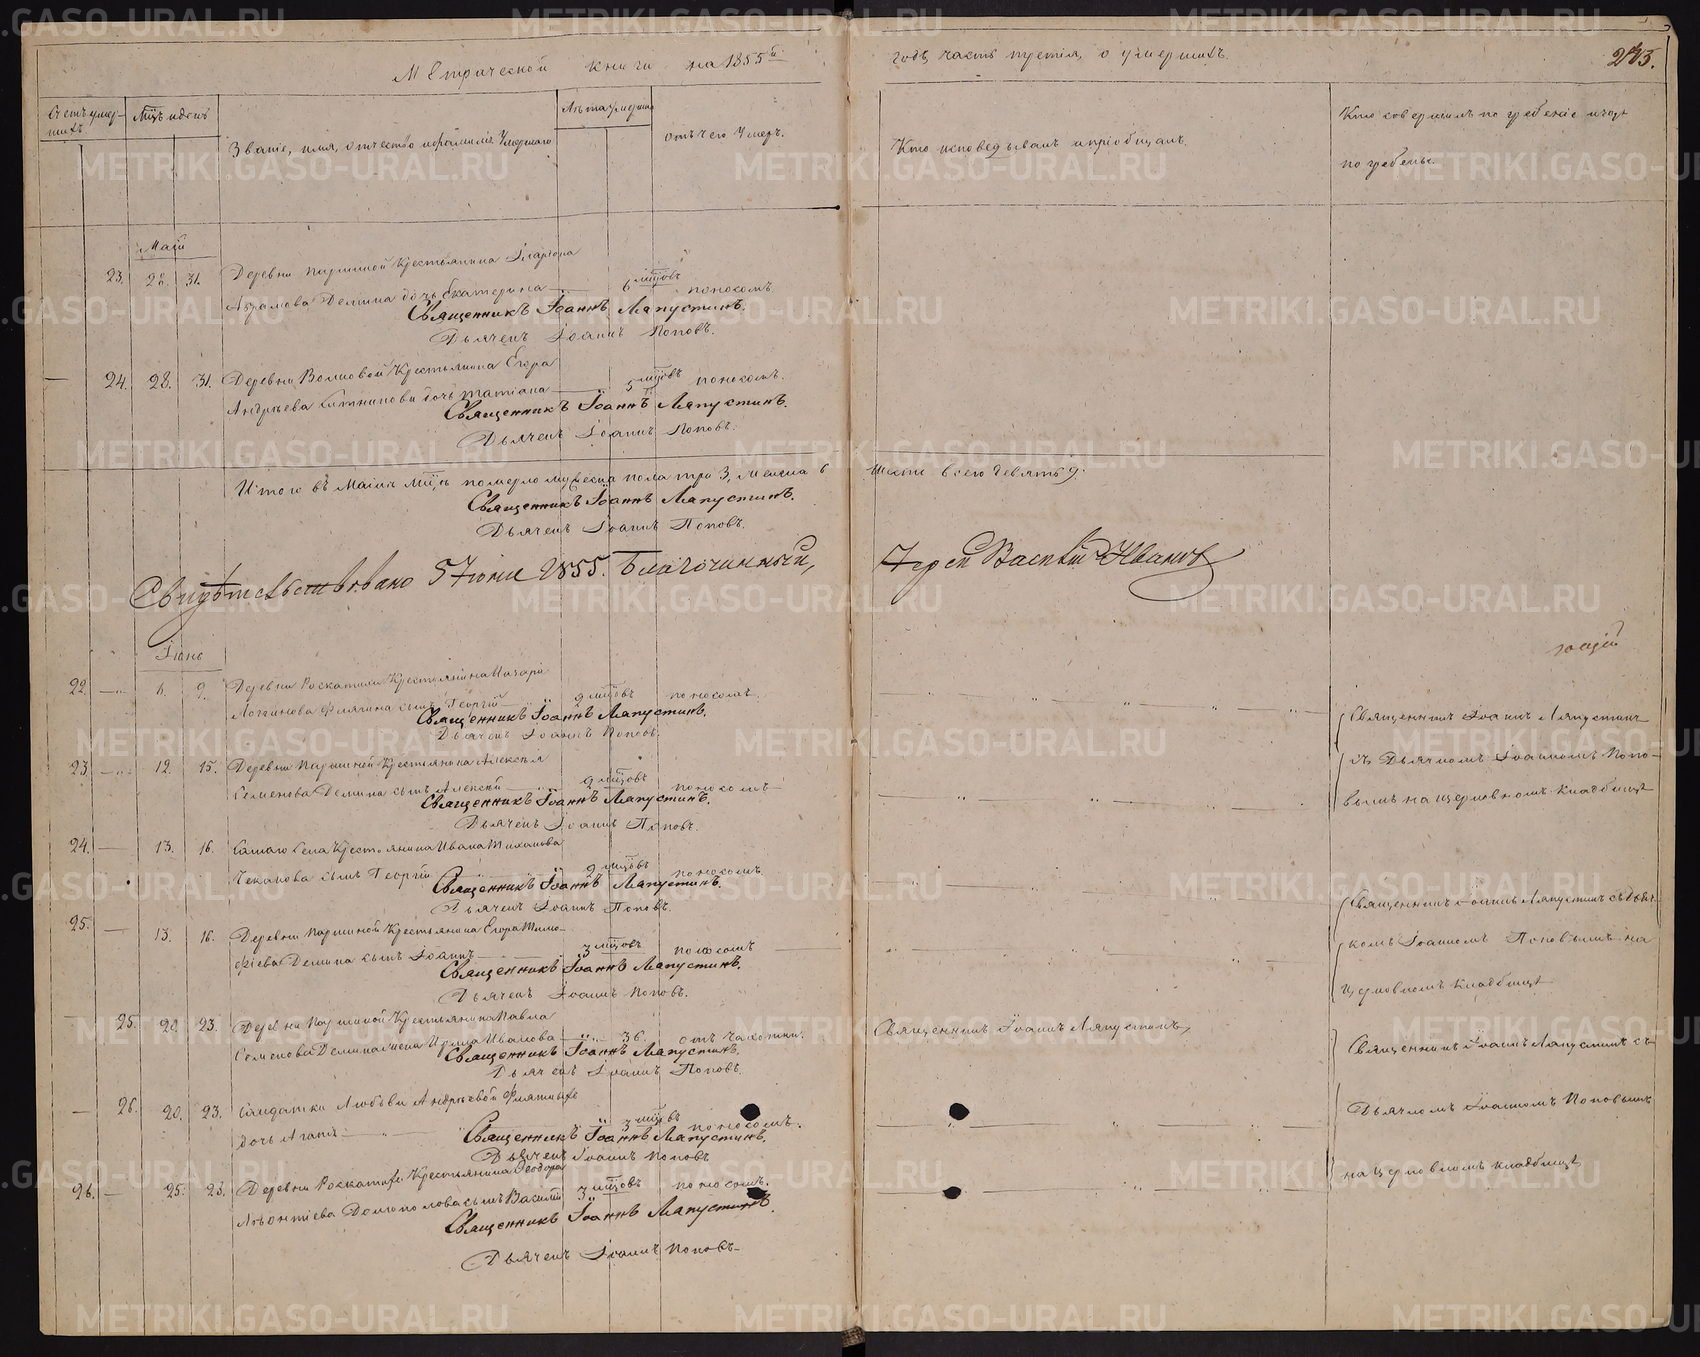 Метрической книги на 1855й годъ часть третія, о умершихъ.
243.
Счетъ умершихъ
Мцъ и день
Званіе, имя, отчество и фамилія Умершаго
Лѣта умерша
отъ чего Умеръ.
Кто исповедывалъ и пріобщалъ.
Кто совершилъ погребеніе и гдѣ
погребены.
Маій
23. 28. 31. Деревни Паршиной Крестьянина
Абрамова Демина дочь Екатерина 6 мцовъ поносомъ
Священникъ Іоаннъ Ляпустинъ.
Дьячекъ Іоаннъ Поповъ.
24. 28. 31. Деревни Волковой Крестьянина Егора
Андрѣева Ситникова дочь Татіана 5 мцовъ поносомъ.
Священникъ Іоаннъ Ляпустинъ.
Дьячекъ Іоаннъ Поповъ.
Итого въ Маіи мцѣ померло мужеска пола три 3, женска 6 шесть всего девять 9.
Священникъ Іоаннъ Ляпустинъ.
Дьячекъ Іоаннъ Поповъ.
Свидѣтельствовано 5 Іюня 1855. Благочинный, Іерей Василій Ивановъ
Іюнь
22. 6. 9. Деревни Роскатихи Крестьянина Назарія
Логгинова Флягина сынъ Георгій 2 мцовъ поносомъ.
Священникъ Іоаннъ Ляпустинъ.
Дьячекъ Іоаннъ Поповъ.
Священникъ Іоаннъ Ляпустинъ
съ Дьячкомъ Іоанномъ Попо-
вымъ на церковномъ кладбищѣ
23. 12. 15. Деревни Паршиной Крестьянина Алексѣя
Семенова Демина сынъ Алексѣй 2 мцовъ поносомъ
Священникъ Іоаннъ Ляпустинъ.
Дьячекъ Іоаннъ Поповъ.
24. 13. 16. Самаго Села Крестьянина Ивана Тиханова
Чеканова сынъ Георгій 2 мцовъ поносомъ
Священникъ Іоаннъ Ляпустинъ.
Дьячекъ Іоаннъ Поповъ.
Священникъ Іоаннъ Ляпустинъ съ Дьяч
комъ Іоанномъ Поповымъ на
церковномъ кладбищѣ
25. 13. 16. Деревни Паршиной Крестьянина Егора Тимо-
фіева Демина сынъ Іоаннъ 3 мцовъ поносомъ
Священникъ Іоаннъ Ляпустинъ.
Дьячекъ Іоаннъ Поповъ.
25. 20. 23. Деревни Паршиной Крестьянина Павла
Семенова Демина жена Ирина Иванова 36. отъ чахотки.
Священникъ Іоаннъ Ляпустинъ.
Дьячекъ Іоаннъ Поповъ.
Священникъ Іоаннъ Ляпустинъ
Священникъ Іоаннъ Ляпустинъ съ
Дьячкомъ Іоанномъ Поповымъ
на церковномъ кладбищѣ
26. 20. 23. Солдатки Любови Андрѣевой Флягиныхъ
дочь Агапія 3 мцовъ поносомъ.
Священникъ Іоаннъ Ляпустинъ.
Дьячекъ Іоаннъ Поповъ
26. 25. 23. Деревни Роскатихи Крестьянина Ѳеодора
Сынъ Василій 3 мцовъ поносомъ.
Священникъ Іоаннъ Ляпустинъ.
Дьячекъ Іоаннъ Поповъ
METRIKI.GASO-URAL.RU